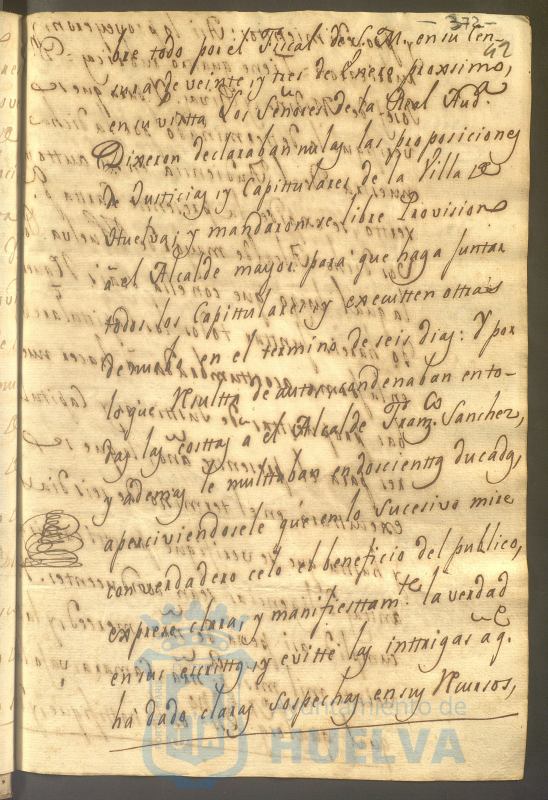 - 372 -
42
bre todo por el Fiscal de S. M. en su Cen-
sura de veinte y tres de Enero proximo,
en su vista Los Señores de la Real Audª.
Dixeron declaraban nulas las proposiciones
de Justicias, y Capittulares de la Villa de
Huelva; y mandaron se libre Provision
á el Alcalde mayor para que haga juntar
todos los Capittulares y executten ottras
de nuebo en el término de seis dias: Y por
lo que Resulta de autos condenaban en to-
das las costtas a el Alcalde Franᶜᵒ Sanchez,
y ademas le multtaban en doscientos ducados,
aperciviendosele que en lo sucesivo mire
con verdadero celo el beneficio del publico,
exprese claras y manifiesttamᵗᵉ la verdad
en sus escrittos, y evitte las inttrigas a q.ᵉ
ha dado claras sospechas en sus Recursos,
Ayuntamiento de
HUELVA